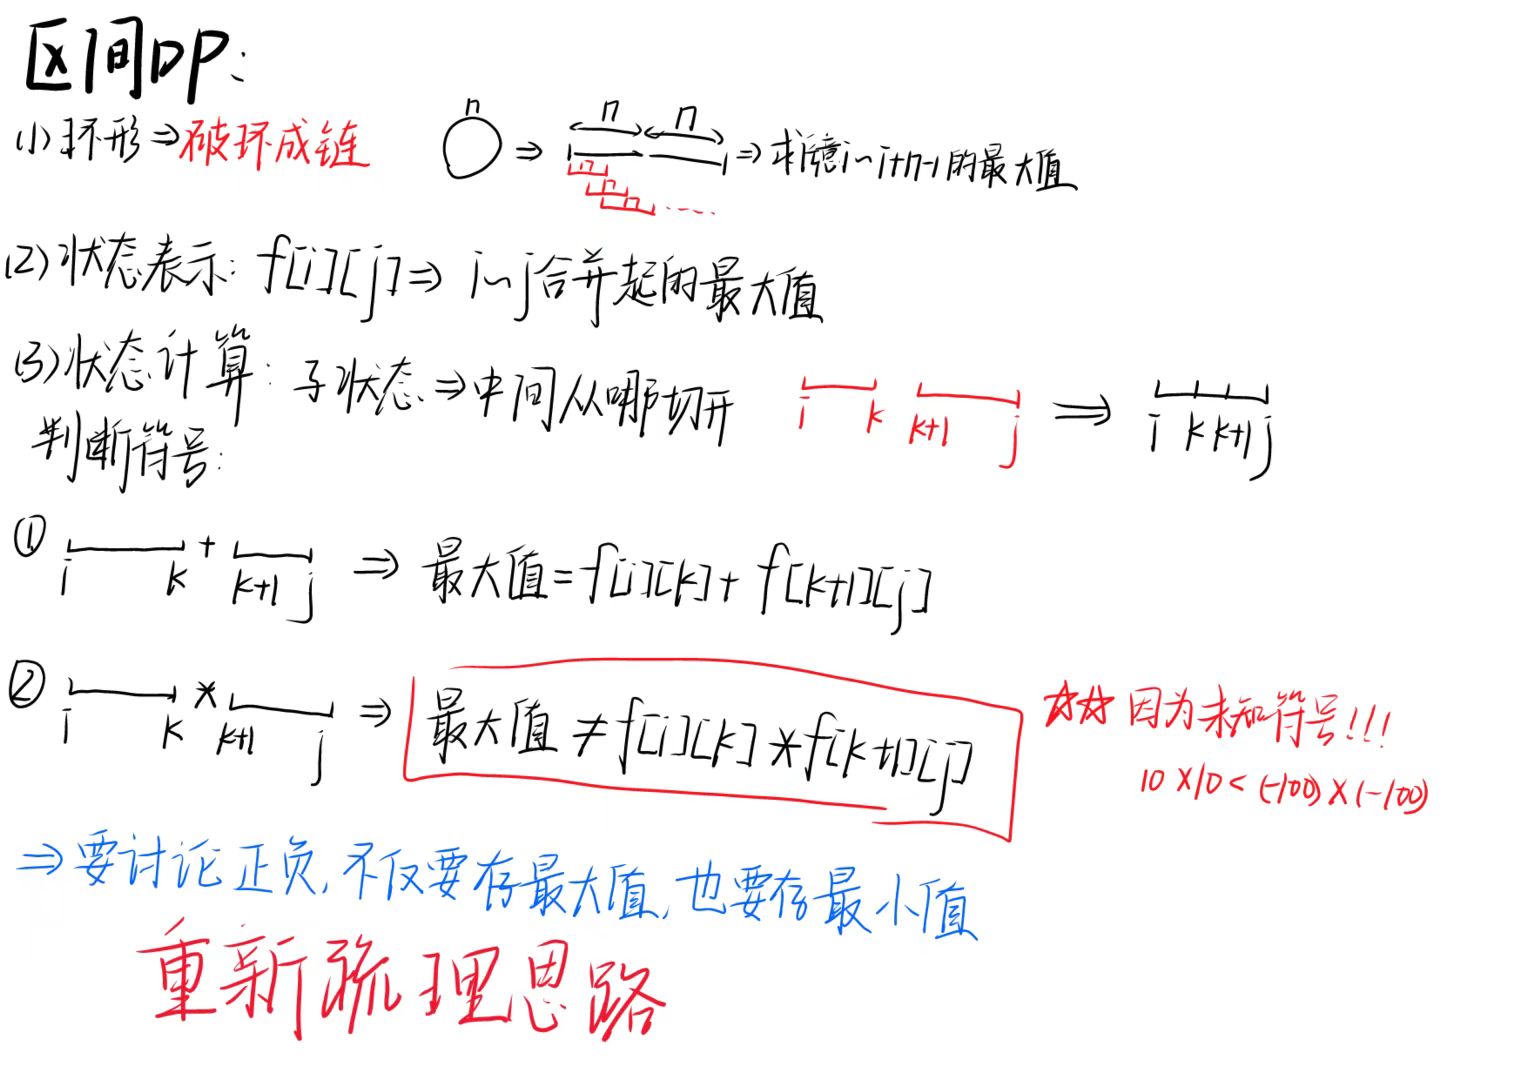 区间DP:
(1)环形⇒破环成链 n ⇒ n n ⇒求i~i+n-1的最大值
n n n ....
(2)状态表示: f[i][j]⇒ i~j合并起的最大值
(3)状态计算: 子状态⇒中间从哪切开 i k k+1 j ⇒ i k k+1 j
判断符号:
① i k + k+1 j ⇒ 最大值=f[i][k]+f[k+1][j]
② i k * k+1 j ⇒ 最大值≠f[i][k]*f[k+1][j] ☆☆因为未知符号!!!
10×10<(-100)×(-100)
⇒要讨论正负,不仅要存最大值,也要存最小值
重新疏理思路